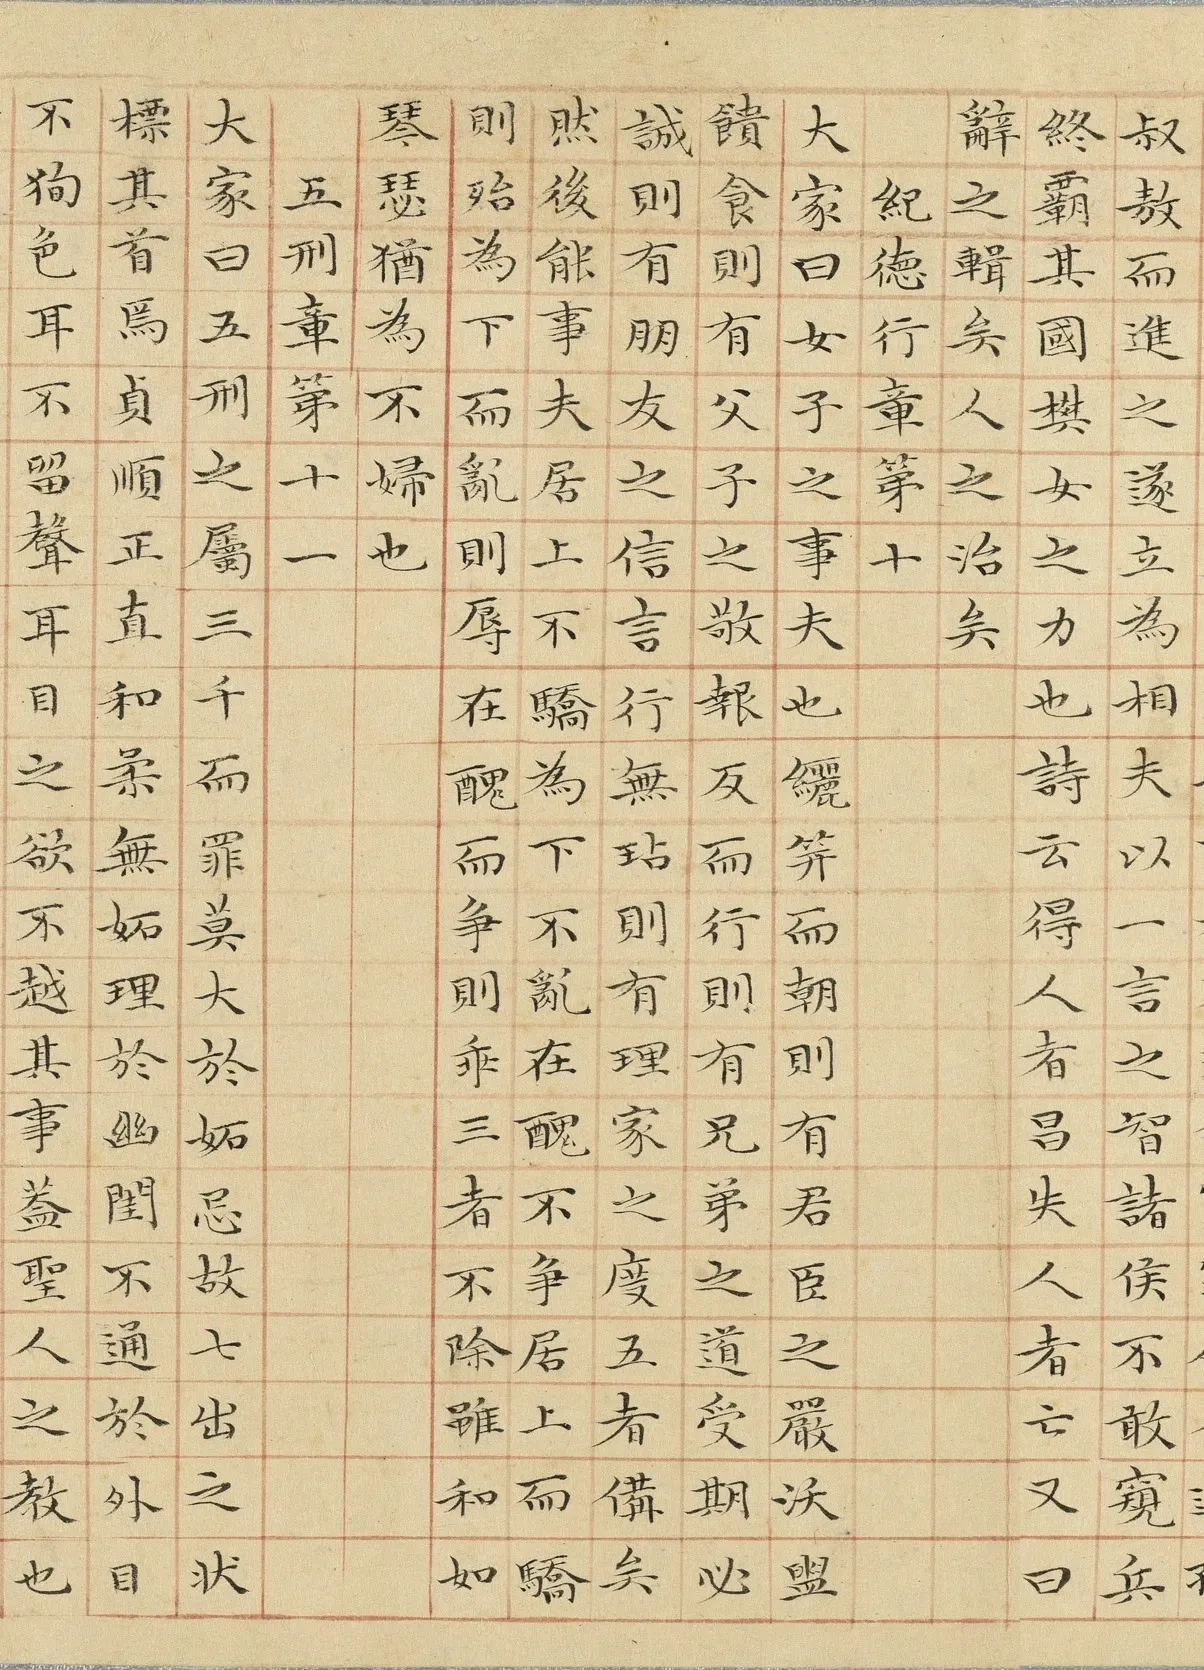 叔敖而進之遂立為相夫以一言之智諸侯不敢窺兵
終霸其國樊女之力也詩云得人者昌失人者亡又曰
辭之輯矣人之治矣
紀德行章第十
大家曰女子之事夫也纚笄而朝則有君臣之嚴沃盥
饋食則有父子之敬報反而行則有兄弟之道受期必
誠則有朋友之信言行無玷則有理家之度五者備矣
然後能事夫居上不驕為下不亂在醜不争居上而驕
則殆為下而亂則辱在醜而争則乖三者不除雖和如
琴瑟猶為不婦也
五刑章第十一
大家曰五刑之屬三千而罪莫大於妬忌故七出之状
標其首焉貞順正直和柔無妬理於幽閨不通於外目
不狥色耳不留聲耳目之欲不越其事蓋聖人之教也